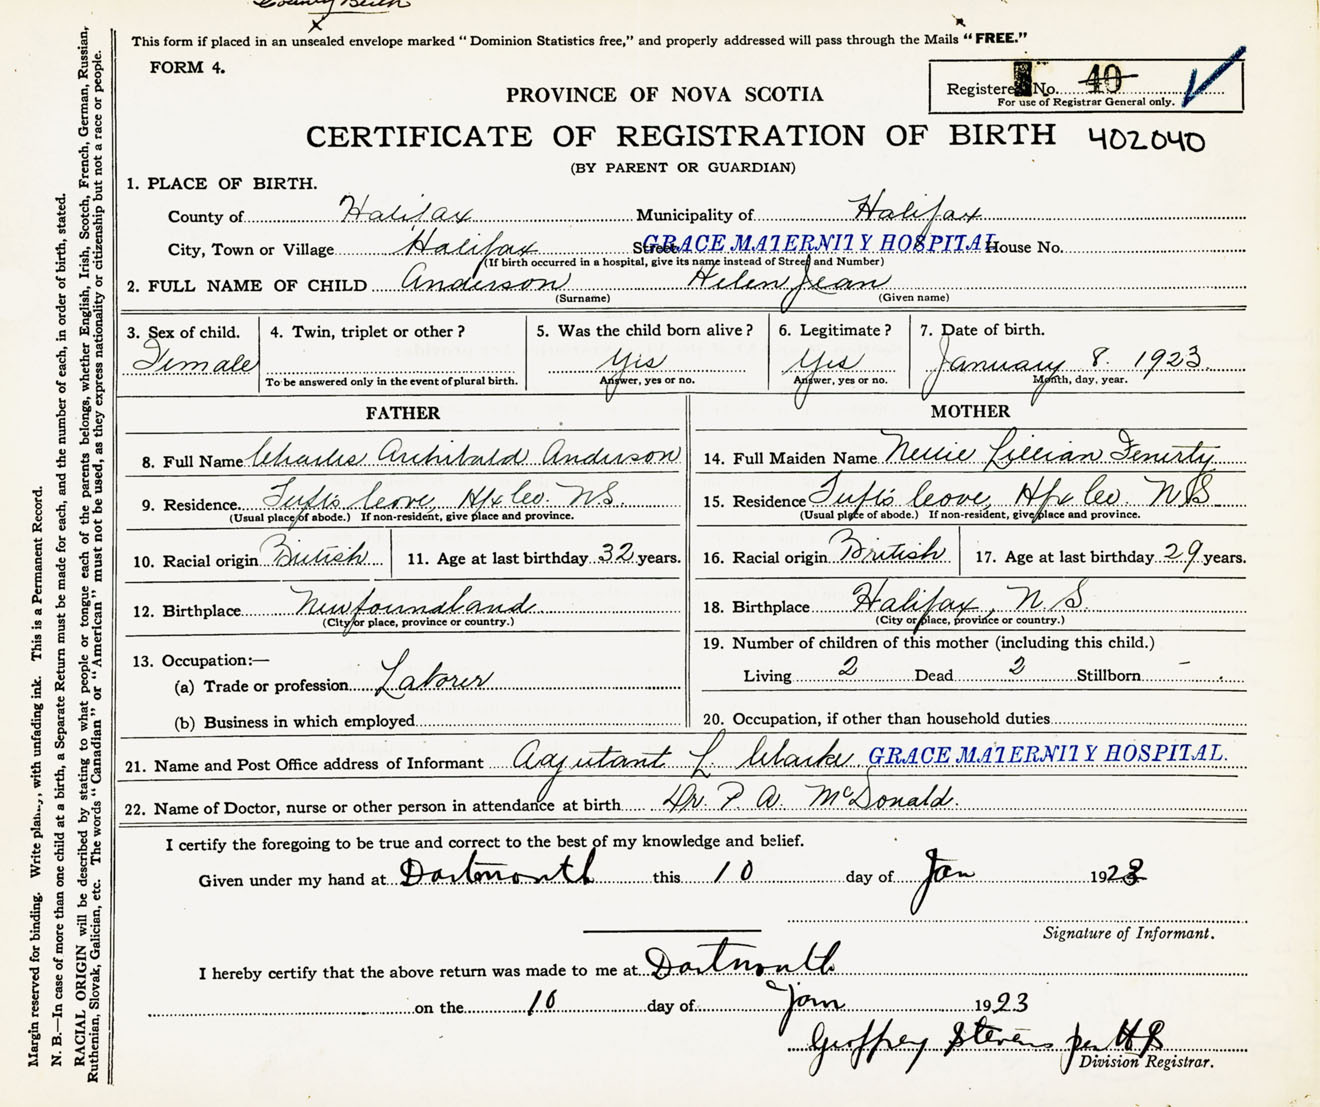 County Birth
This form if placed in an unsealed envelope marked "Dominion Statistics free," and properly addressed will pass through the Mails "FREE."
FORM 4.
Registered No. 40
For use of Registrar General only.
PROVINCE OF NOVA SCOTIA
CERTIFICATE OF REGISTRATION OF BIRTH 402040
(BY PARENT OR GUARDIAN)
1. PLACE OF BIRTH.
County of Halifax Municipality of Halifax
City, Town or Village Halifax Street GRACE MATERNITY HOSPITAL House No.
(If birth occurred in a hospital, give its name instead of Street and Number)
2. FULL NAME OF CHILD Anderson Helen Jean
(Surname) (Given name)
3. Sex of child. 4. Twin, triplet or other? 5. Was the child born alive? 6. Legitimate? 7. Date of birth.
Female Yes Yes January 8. 1923.
To be answered only in the event of plural birth. Answer, yes or no. Answer, yes or no. Month, day, year.
FATHER MOTHER
8. Full Name Charles Archibald Anderson 14. Full Maiden Name Nellie Lillian Fenerty
9. Residence Tuft's Cove, Hfx Co. N.S. 15. Residence Tuft's Cove, Hfx Co. N.S
(Usual place of abode.) If non-resident, give place and province. (Usual place of abode.) If non-resident, give place and province.
10. Racial origin British 11. Age at last birthday 32 years. 16. Racial origin British 17. Age at last birthday 29 years.
12. Birthplace Newfoundland 18. Birthplace Halifax, N.S.
(City or place, province or country.) (City or place, province or country.)
13. Occupation:— 19. Number of children of this mother (including this child.)
(a) Trade or profession Laborer Living 2 Dead 2 Stillborn -
(b) Business in which employed 20. Occupation, if other than household duties
21. Name and Post Office address of Informant Adjutant L. Clarke GRACE MATERNITY HOSPITAL.
22. Name of Doctor, nurse or other person in attendance at birth Dr. P. A. McDonald.
I certify the foregoing to be true and correct to the best of my knowledge and belief.
Given under my hand at Dartmouth this 10 day of Jan 1923
Signature of Informant.
I hereby certify that the above return was made to me at Dartmouth
on the 10 day of Jan 1923
Geoffrey Stevens per HB
Division Registrar.
Margin reserved for binding. Write plainly, with unfading ink. This is a Permanent Record.
N. B.—In case of more than one child at a birth, a Separate Return must be made for each, and the number of each, in order of birth, stated.
RACIAL ORIGIN will be described by stating to what people or tongue each of the parents belongs, whether English, Irish, Scotch, French, German, Russian,
Ruthenian, Slovak, Galician, etc. The words "Canadian" or "American" must not be used, as they express nationality or citizenship but not a race or people.